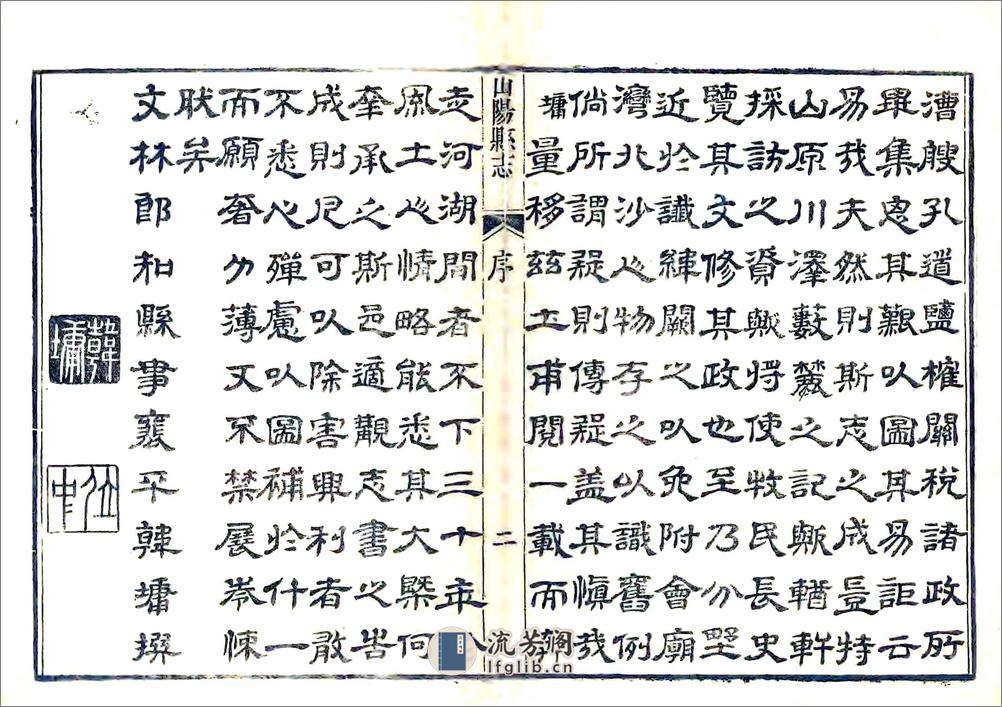 漕艘孔道鹽榷關稅諸政所
畢集思其艱以圖其易詎云
易哉夫然則斯志之成豈特
山原川澤藪麓之記歟輶軒
採訪之資歟将使牧民長史
覽其文修其政也至乃分野
近於讖緯闕之以免附會廟
灣北沙之物存之以識舊例
倘所謂疑則傳疑蓋其慎哉
墉量移茲土甫閱一載而
山陽縣志
序
二
走河湖間者不下三十年
風土人情略能悉其大槩何
幸承之斯邑適觀志書之告
成則凡可以除害興利者敢
不悉心殫慮以圖補於什一
而願奢力薄又不禁展卷悚
肰矣
文林郎知縣事襄平韓墉撰
韓墉
流芳閣
lfglib.cn